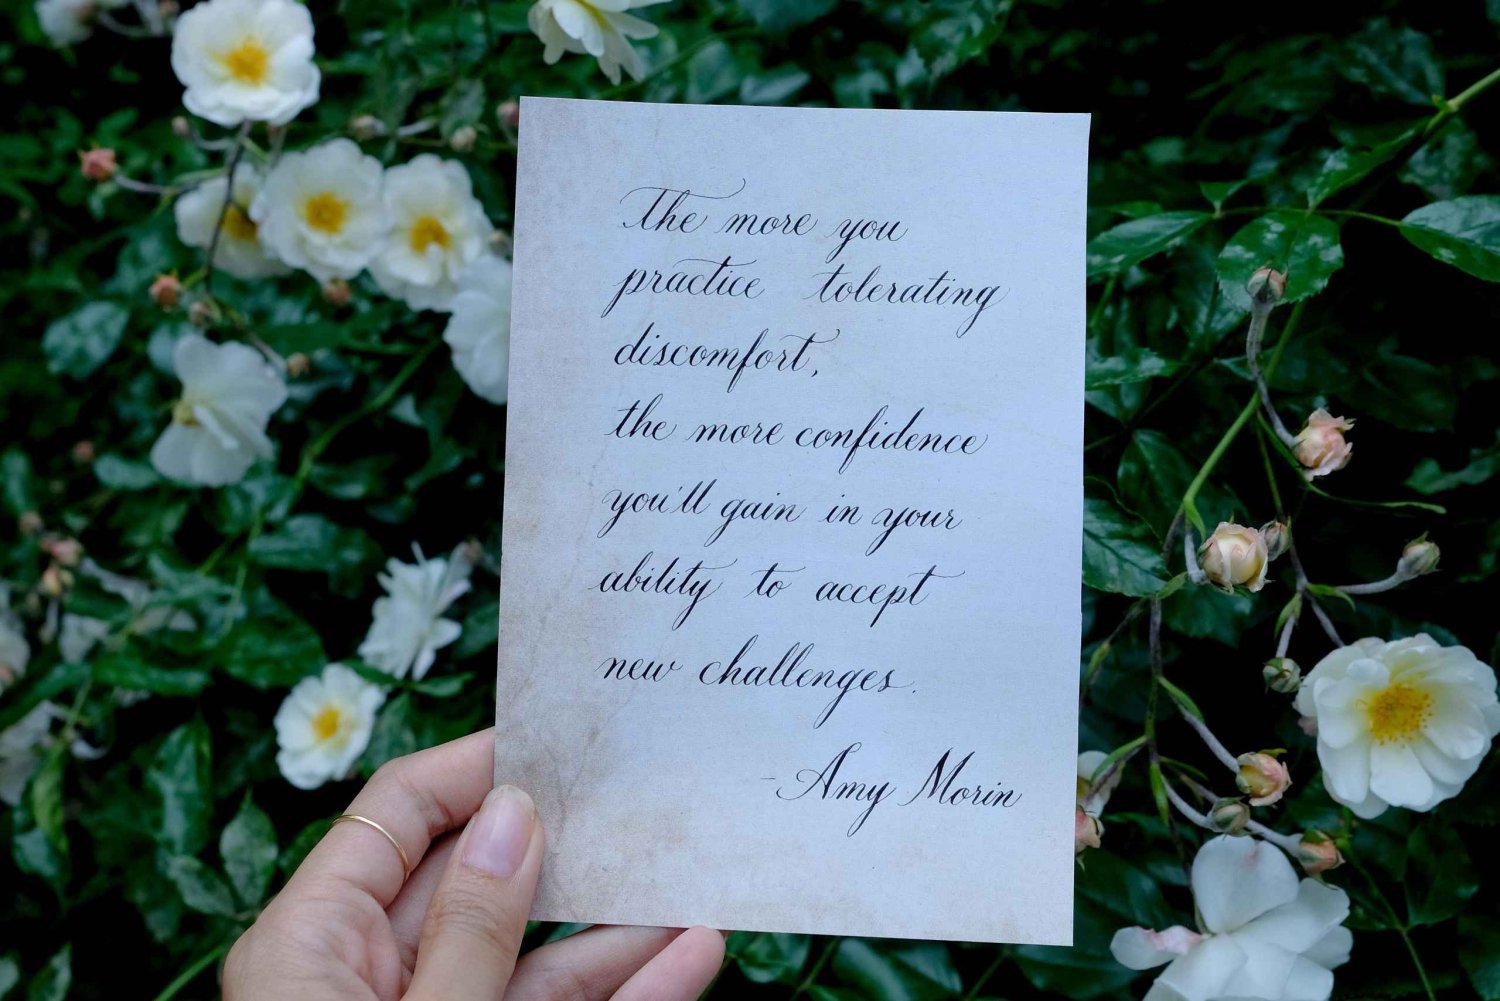 The more you
practice tolerating
discomfort,
the more confidence
you'll gain in your
ability to accept
new challenges.
- Amy Morin